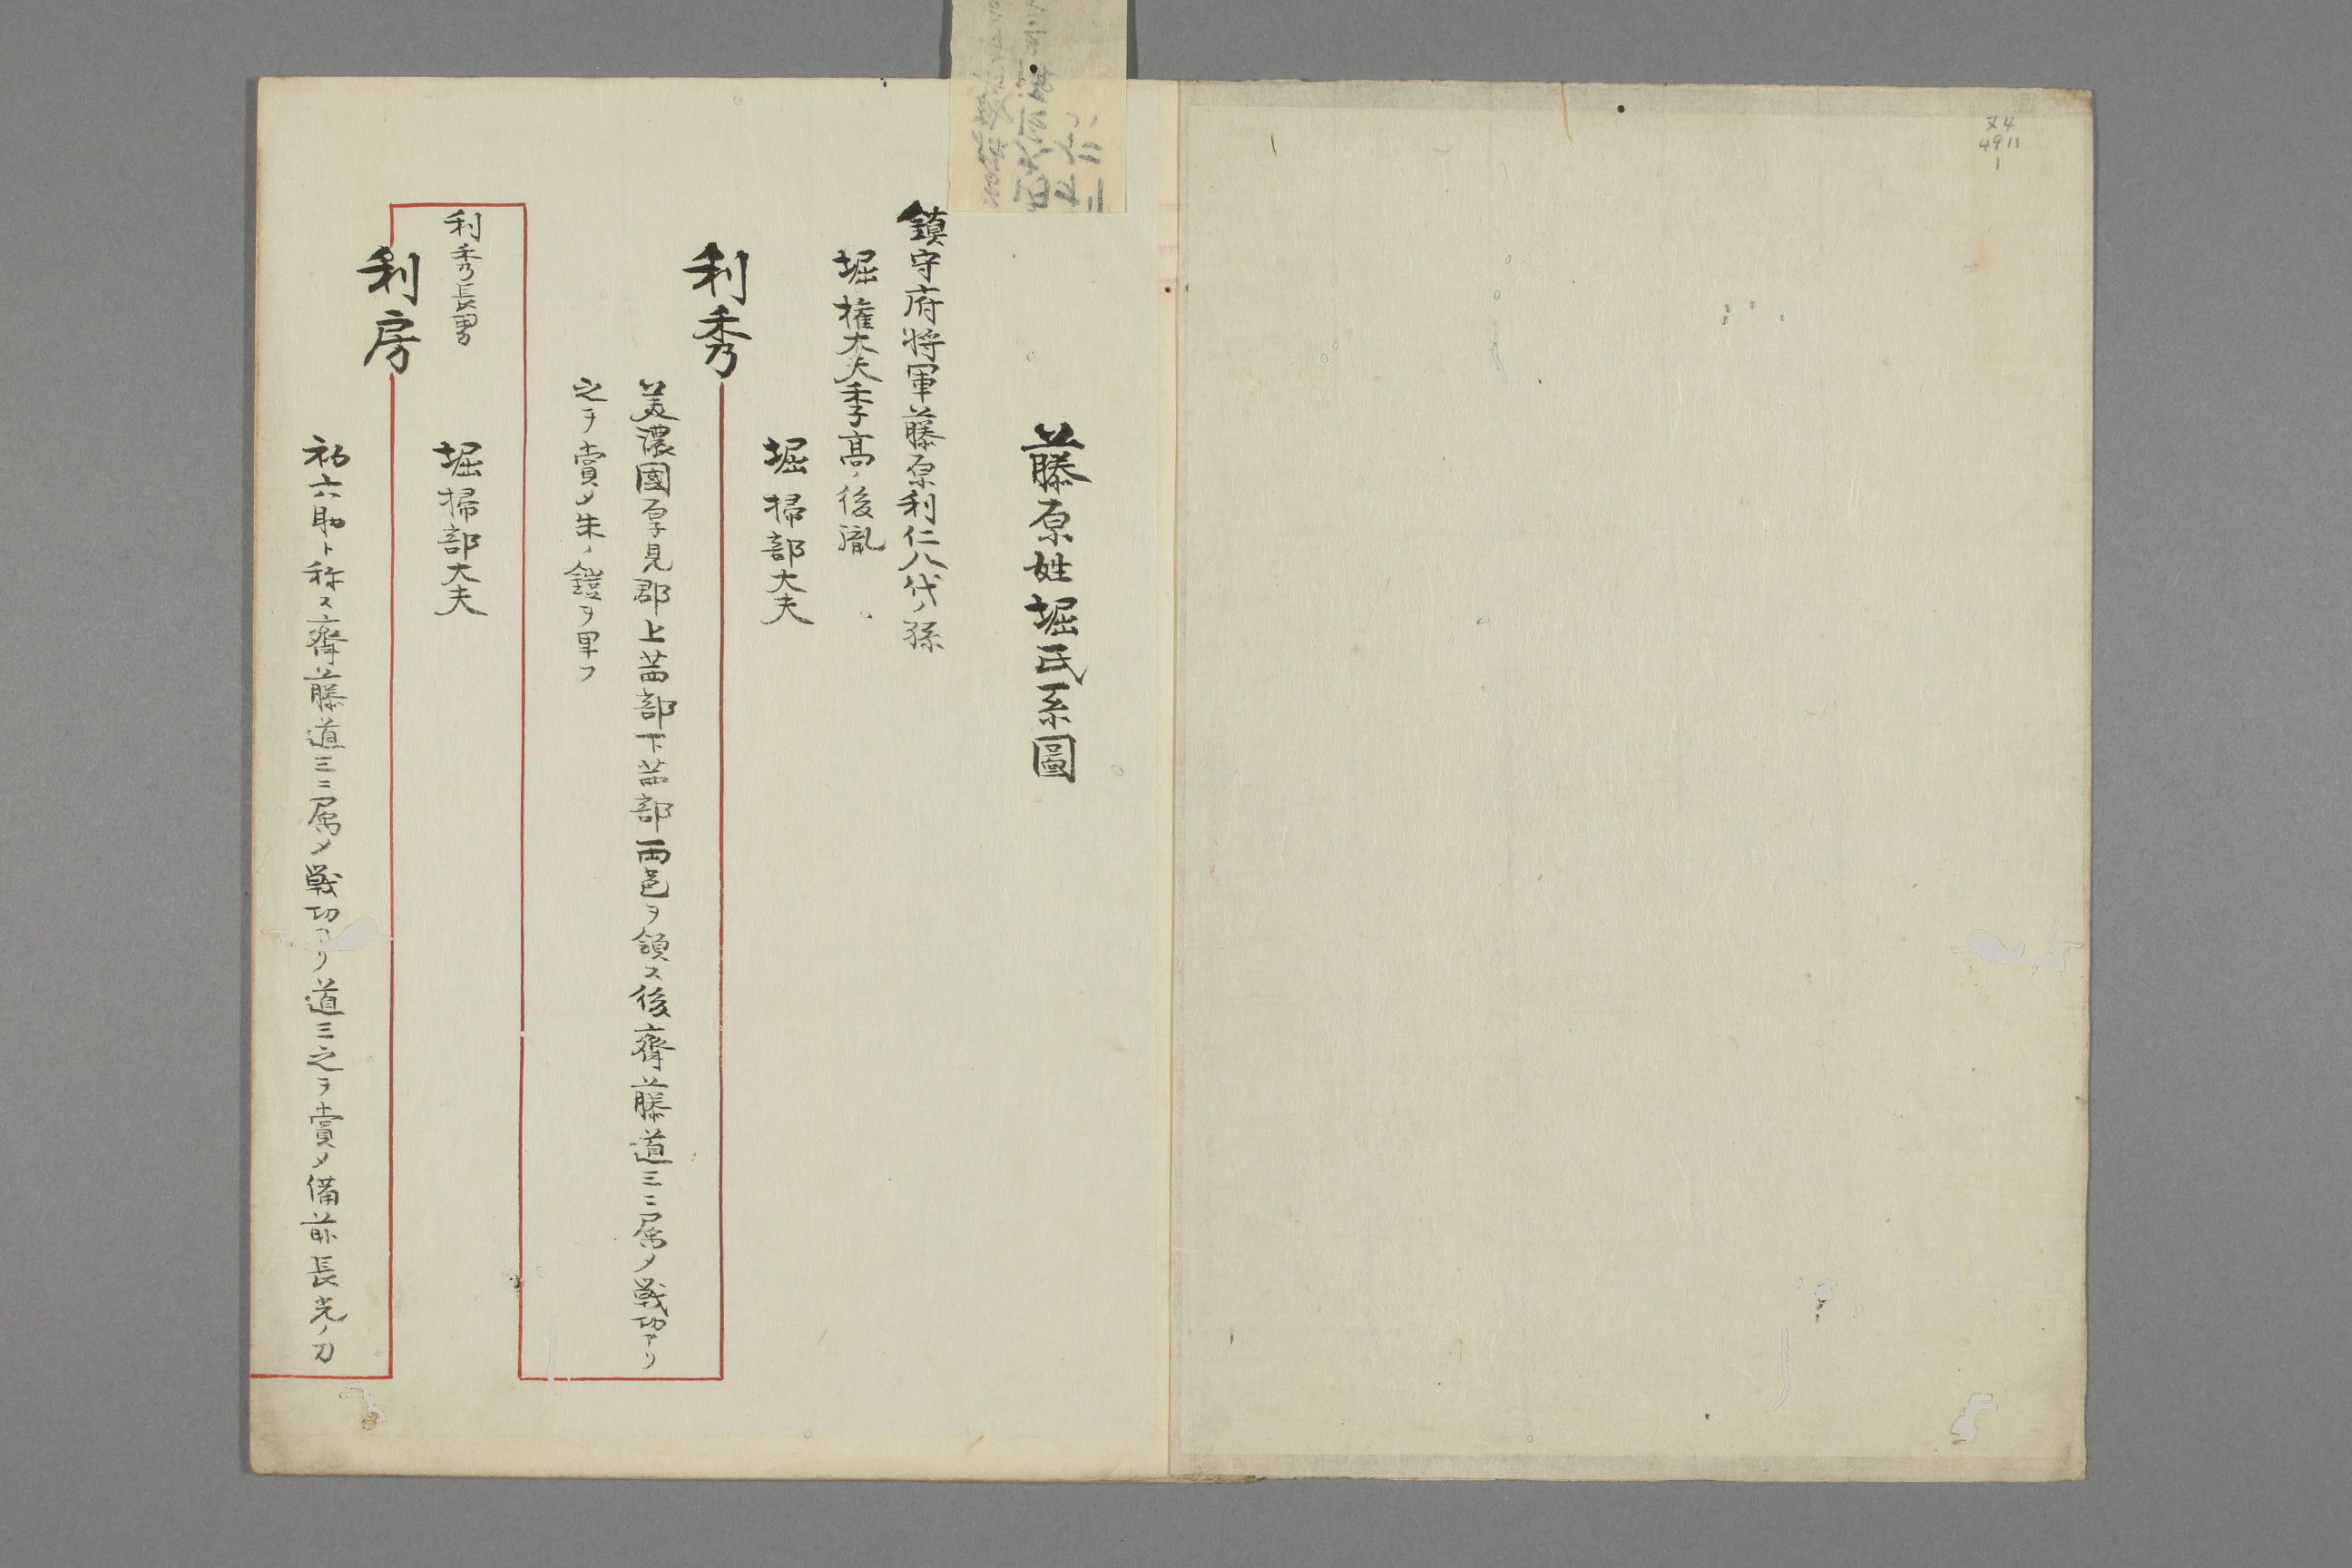 ヌ4
4911
1
藤原姓堀氏系圖
鎮守府将軍藤原利仁八代ノ孫
堀権大夫季高ノ後胤
堀掃部大夫
利秀
美濃國厚見郡上茜部下茜部両邑ヲ領ス後齊藤道三ニ属メ戦功アリ
之ヲ賞メ朱ノ鎧ヲ畀フ
利秀長男
堀掃部大夫
利房
初六助ト称ス齊藤道三ニ属メ戦功アリ道三之ヲ賞メ備前長光ノ刀